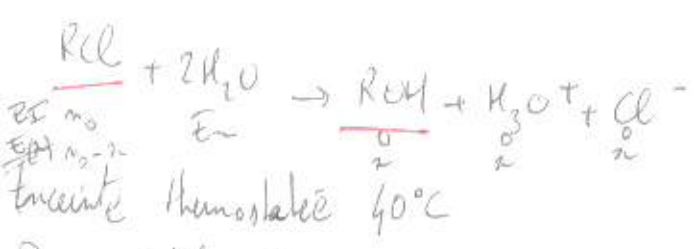 RCl + 2H₂O → ROH + H₃O⁺ + Cl⁻
EI n₀ Ex 0 0 0
E(t) n₀-x x x x
Enceinte thermostatée 40°C